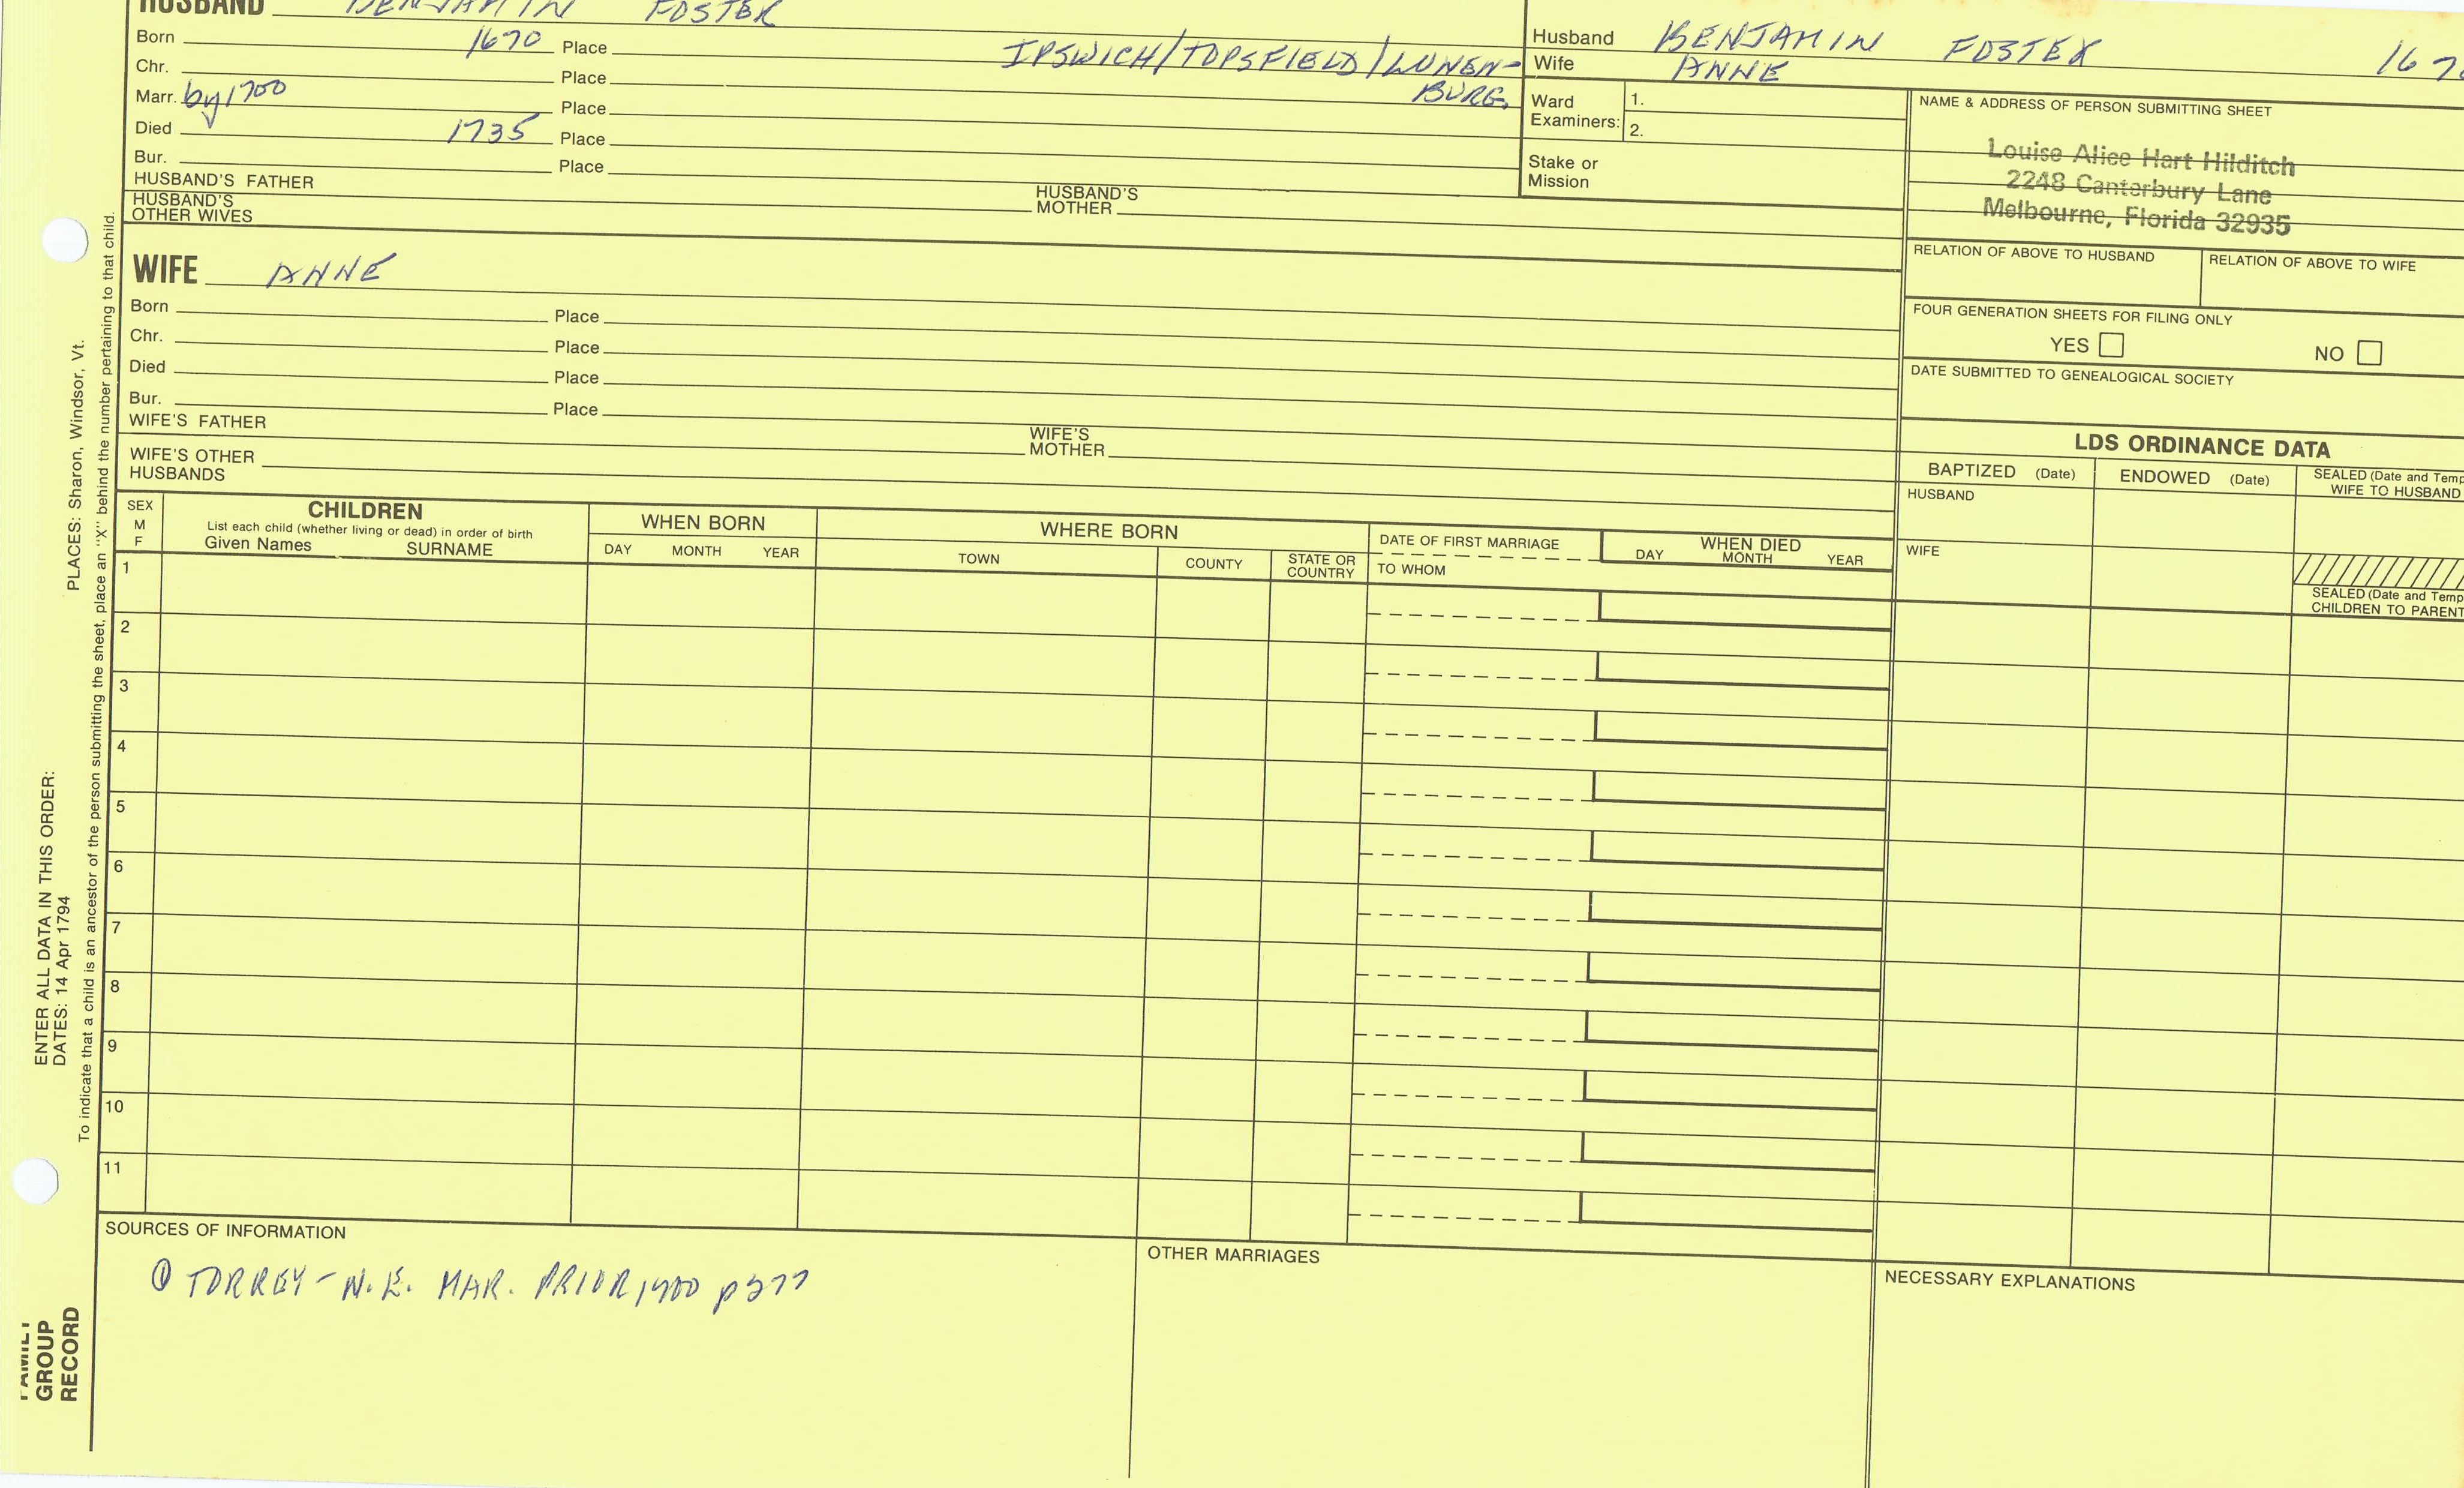 HUSBAND BENJAMIN FOSTER
Born 1670 Place IPSWICH/TOPSFIELD/LUNEN-
BURG.
Chr. Place
Marr. by 1700 Place
Died 1735 Place
Bur. Place
HUSBAND'S FATHER HUSBAND'S MOTHER
HUSBAND'S OTHER WIVES
Husband BENJAMIN FOSTER
Wife ANNE
Ward Examiners: 1.
2.
Stake or Mission
NAME & ADDRESS OF PERSON SUBMITTING SHEET
Louise Alice Hart Hilditch
2248 Canterbury Lane
Melbourne, Florida 32935
RELATION OF ABOVE TO HUSBAND RELATION OF ABOVE TO WIFE
FOUR GENERATION SHEETS FOR FILING ONLY
YES NO
DATE SUBMITTED TO GENEALOGICAL SOCIETY
WIFE ANNE
Born Place
Chr. Place
Died Place
Bur. Place
WIFE'S FATHER WIFE'S MOTHER
WIFE'S OTHER HUSBANDS
LDS ORDINANCE DATA
BAPTIZED (Date) ENDOWED (Date) SEALED (Date and Temp
WIFE TO HUSBAND
HUSBAND
WIFE
SEALED (Date and Temp
CHILDREN TO PARENT
SEX
M
F
CHILDREN
List each child (whether living or dead) in order of birth
Given Names SURNAME
WHEN BORN
DAY MONTH YEAR
WHERE BORN
TOWN COUNTY STATE OR COUNTRY
DATE OF FIRST MARRIAGE
TO WHOM
WHEN DIED
DAY MONTH YEAR
1
2
3
4
5
6
7
8
9
10
11
SOURCES OF INFORMATION
① TORREY - N.E. MAR. PRIOR 1700 p277
OTHER MARRIAGES
NECESSARY EXPLANATIONS
FAMILY
GROUP
RECORD
ENTER ALL DATA IN THIS ORDER:
DATES: 14 Apr 1794 PLACES: Sharon, Windsor, Vt.
To indicate that a child is an ancestor of the person submitting the sheet, place an "X" behind the number pertaining to that child.